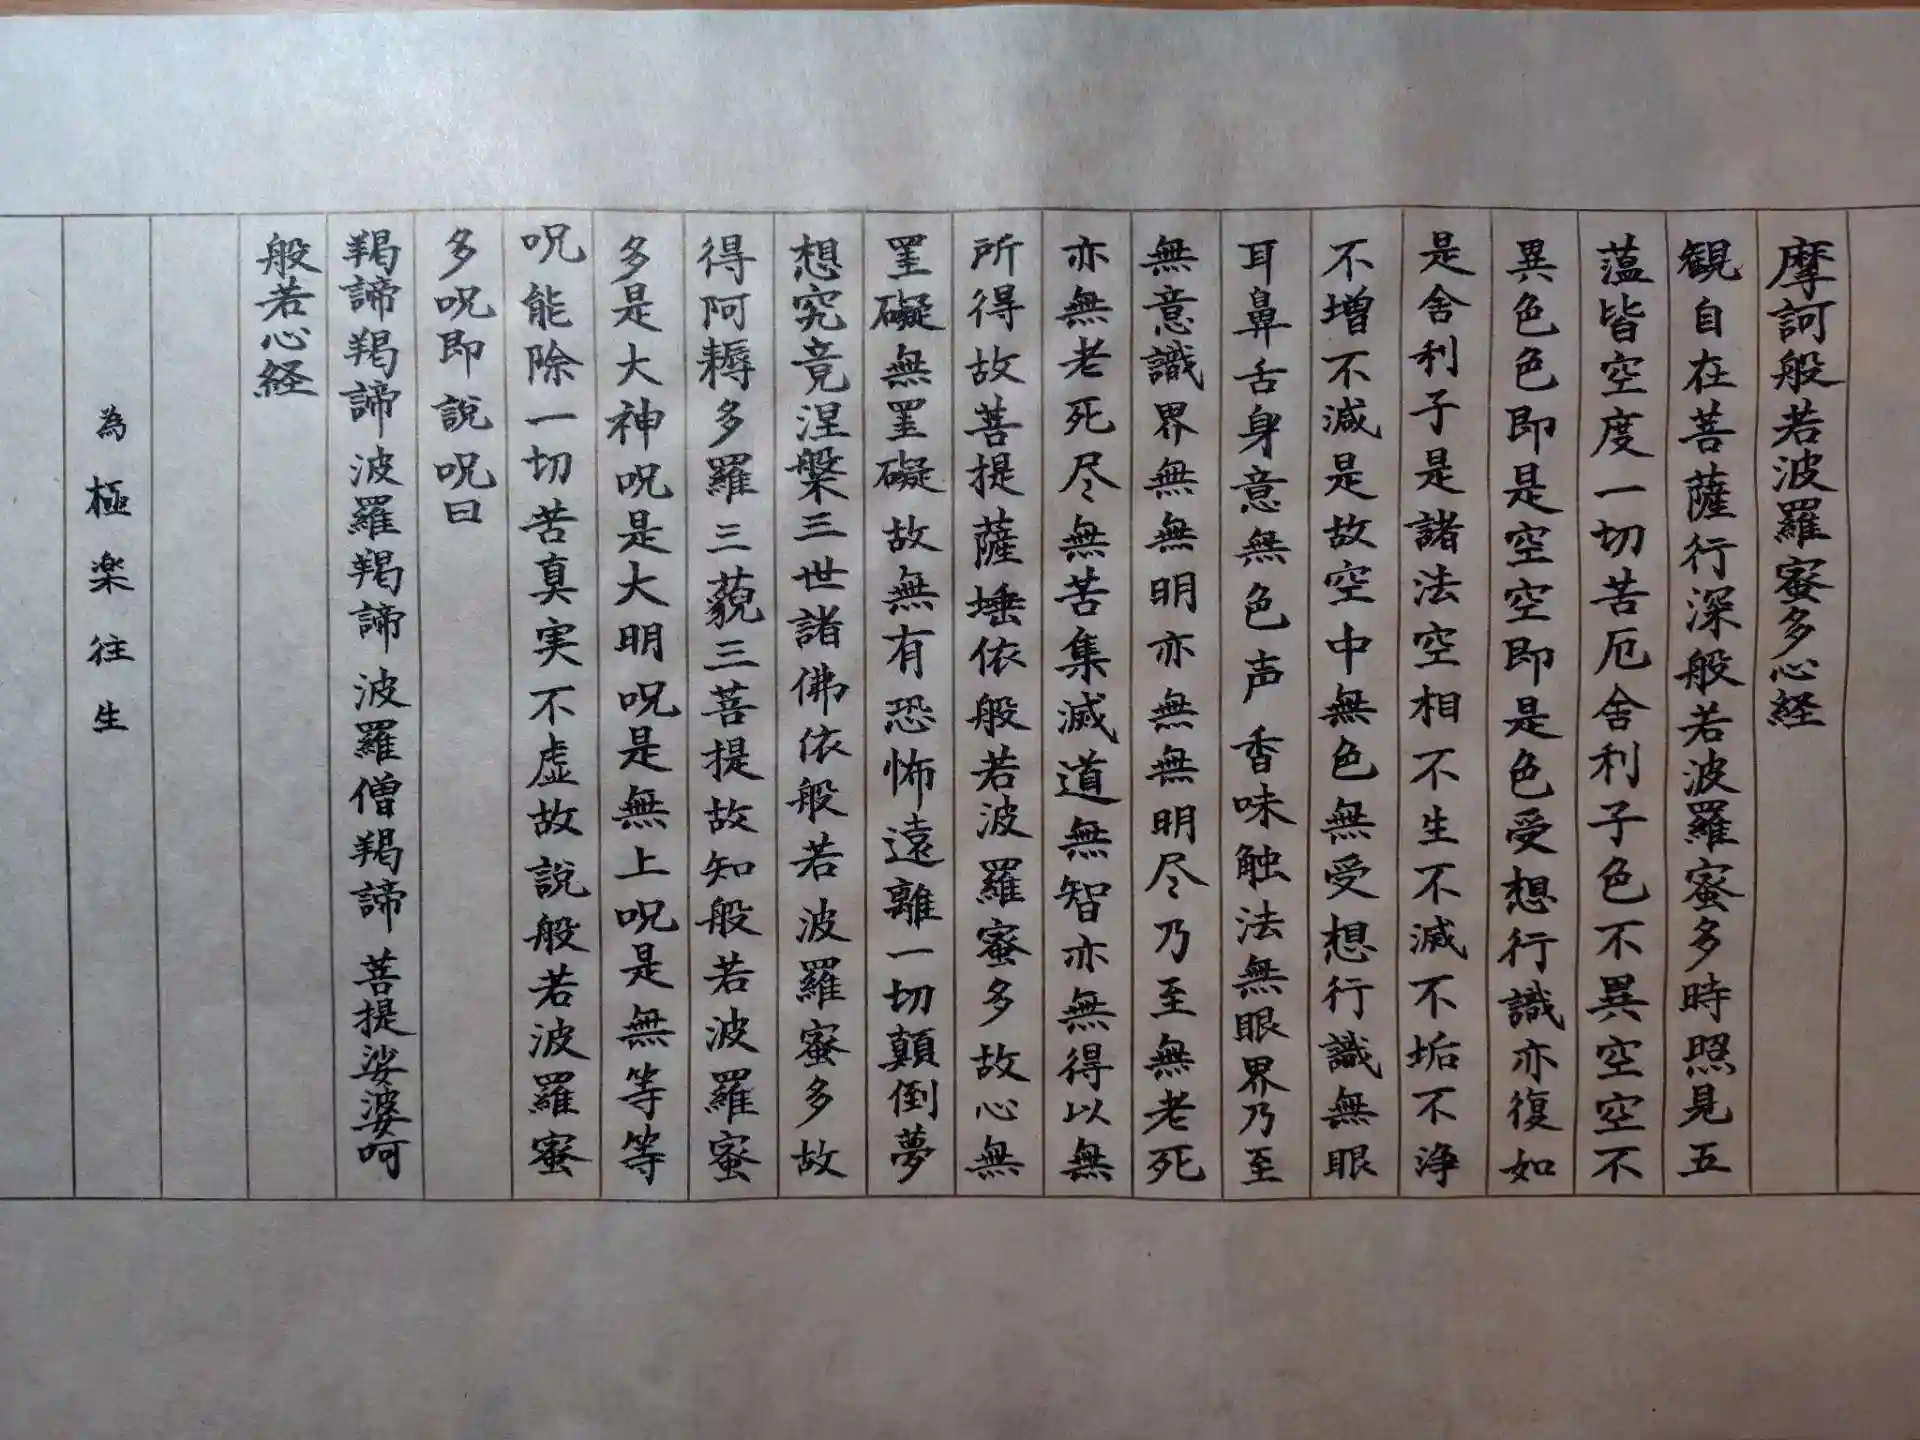 摩訶般若波羅蜜多心経
観自在菩薩行深般若波羅蜜多時照見五
薀皆空度一切苦厄舎利子色不異空空不
異色色即是空空即是色受想行識亦復如
是舎利子是諸法空相不生不滅不垢不浄
不増不減是故空中無色無受想行識無眼
耳鼻舌身意無色声香味触法無眼界乃至
無意識界無無明亦無無明尽乃至無老死
亦無老死尽無苦集滅道無智亦無得以無
所得故菩提薩埵依般若波羅蜜多故心無
罣礙無罣礙故無有恐怖遠離一切顛倒夢
想究竟涅槃三世諸佛依般若波羅蜜多故
得阿耨多羅三藐三菩提故知般若波羅蜜
多是大神呪是大明呪是無上呪是無等等
呪能除一切苦真実不虚故説般若波羅蜜
多呪即説呪曰
羯諦羯諦波羅羯諦波羅僧羯諦菩提娑婆呵
般若心経
為極楽往生